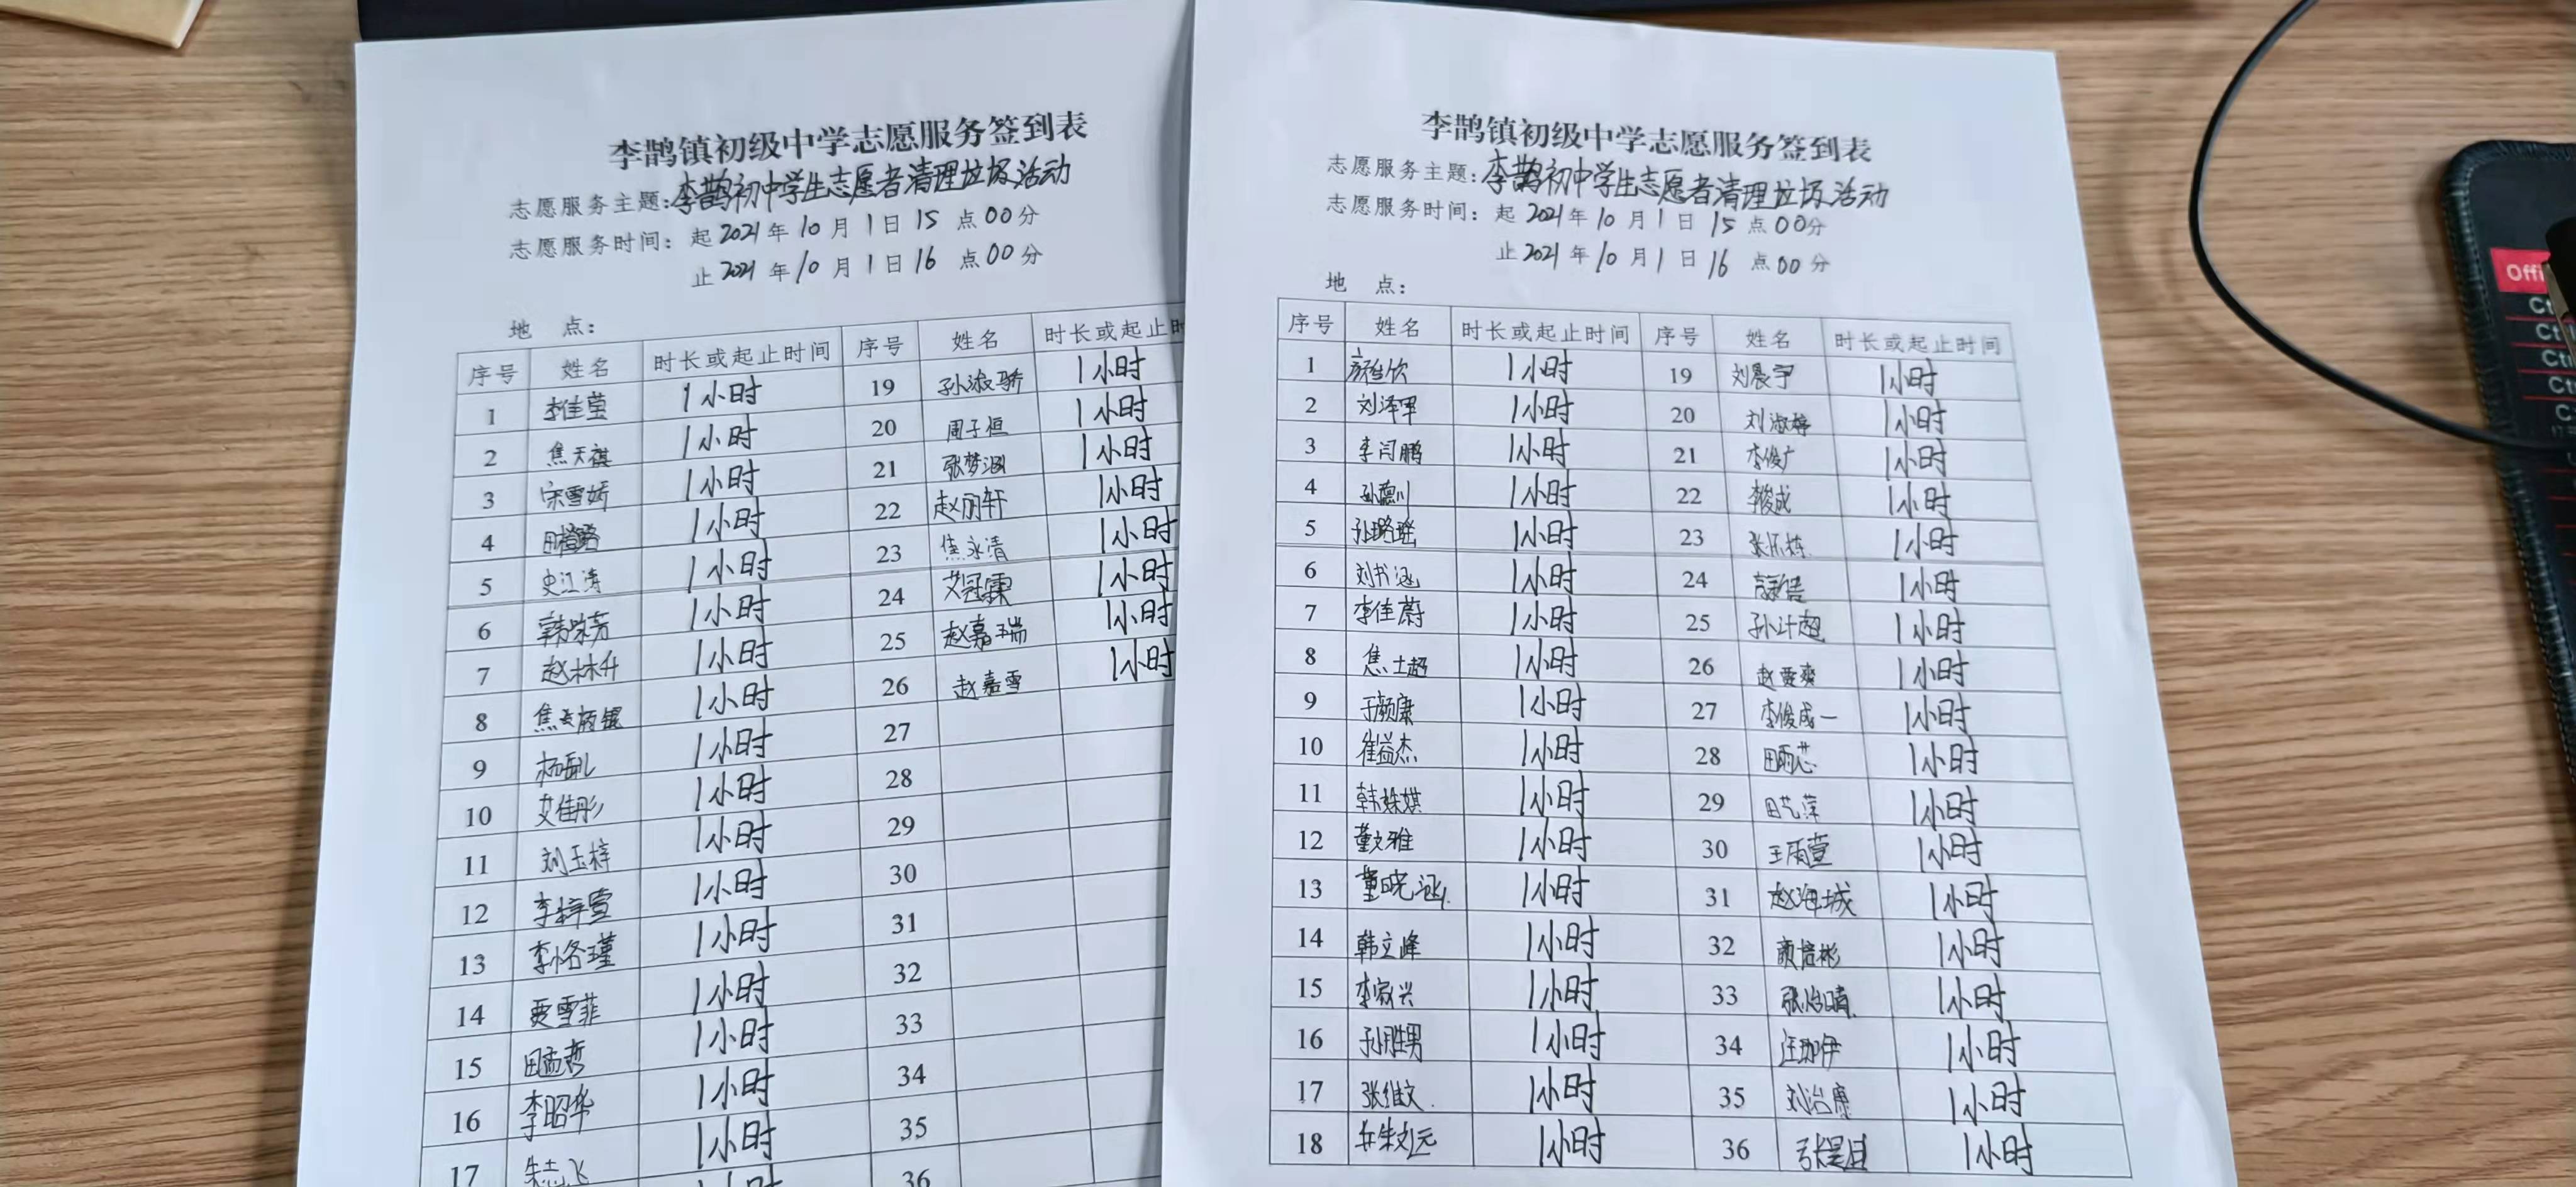 李鹊镇初级中学志愿服务签到表
志愿服务主题:李鹊初中学生志愿者清理垃圾活动
志愿服务时间: 起2021年10月1日15点00分
止2021年10月1日16点00分
地 点:
序号 姓名 时长或起止时间 序号 姓名 时长或起止时间
1 李佳莹 1小时 19 孙淑骄 1小时
2 焦天祺 1小时 20 周子恒 1小时
3 宋雪娇 1小时 21 张梦涵 1小时
4 1小时 22 赵丽轩 1小时
5 史江涛 1小时 23 焦永清 1小时
6 韩咏芳 1小时 24 艾冠霖 1小时
7 赵林升 1小时 25 赵嘉瑞 1小时
8 1小时 26 赵嘉雪 1小时
9 1小时 27
10 艾佳彤 1小时 28
11 刘玉梓 1小时 29
12 李梓萱 1小时 30
13 李恪瑾 1小时 31
14 贾雪菲 1小时 32
15 田孟哲 1小时 33
16 李昭华 1小时 34
17 朱志飞 1小时 35
36
李鹊镇初级中学志愿服务签到表
志愿服务主题:李鹊初中学生志愿者清理垃圾活动
志愿服务时间: 起2021年10月1日15点00分
止2021年10月1日16点00分
地 点:
序号 姓名 时长或起止时间 序号 姓名 时长或起止时间
1 1小时 19 刘晨宇 1小时
2 刘泽军 1小时 20 刘淑婷 1小时
3 李闫鹏 1小时 21 李俊广 1小时
4 孙德川 1小时 22 李俊成 1小时
5 孙璐瑶 1小时 23 张怀栋 1小时
6 刘书涵 1小时 24 1小时
7 李佳蔚 1小时 25 孙计超 1小时
8 焦士超 1小时 26 1小时
9 于颜康 1小时 27 李俊成一 1小时
10 崔益杰 1小时 28 田雨芯 1小时
11 韩姝祺 1小时 29 田艺萍 1小时
12 董文雅 1小时 30 王雨萱 1小时
13 董晓涵 1小时 31 赵海城 1小时
14 韩立峰 1小时 32 颜培彬 1小时
15 李家兴 1小时 33 张怡晴 1小时
16 孙胜男 1小时 34 汪珈伊 1小时
17 张继文 1小时 35 刘治康 1小时
18 1小时 36 1小时
Offi
Ct
Ct
Ct
Ct